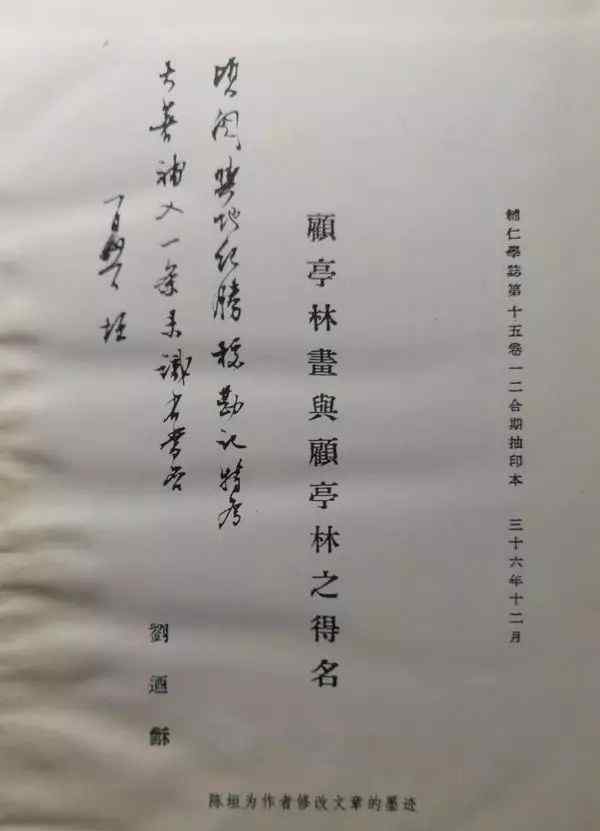 輔仁學誌第十五卷一二合期抽印本 三十六年十二月
顧亭林畫與顧亭林之得名
頃閱輿地紀勝校勘記特為
大著補入一條未識有當否
垣
劉迺龢
陈垣为作者修改文章的墨迹